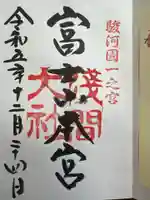 駿河國一之宮
富士山本宮
淺間大社
令和五年十二月二十四日